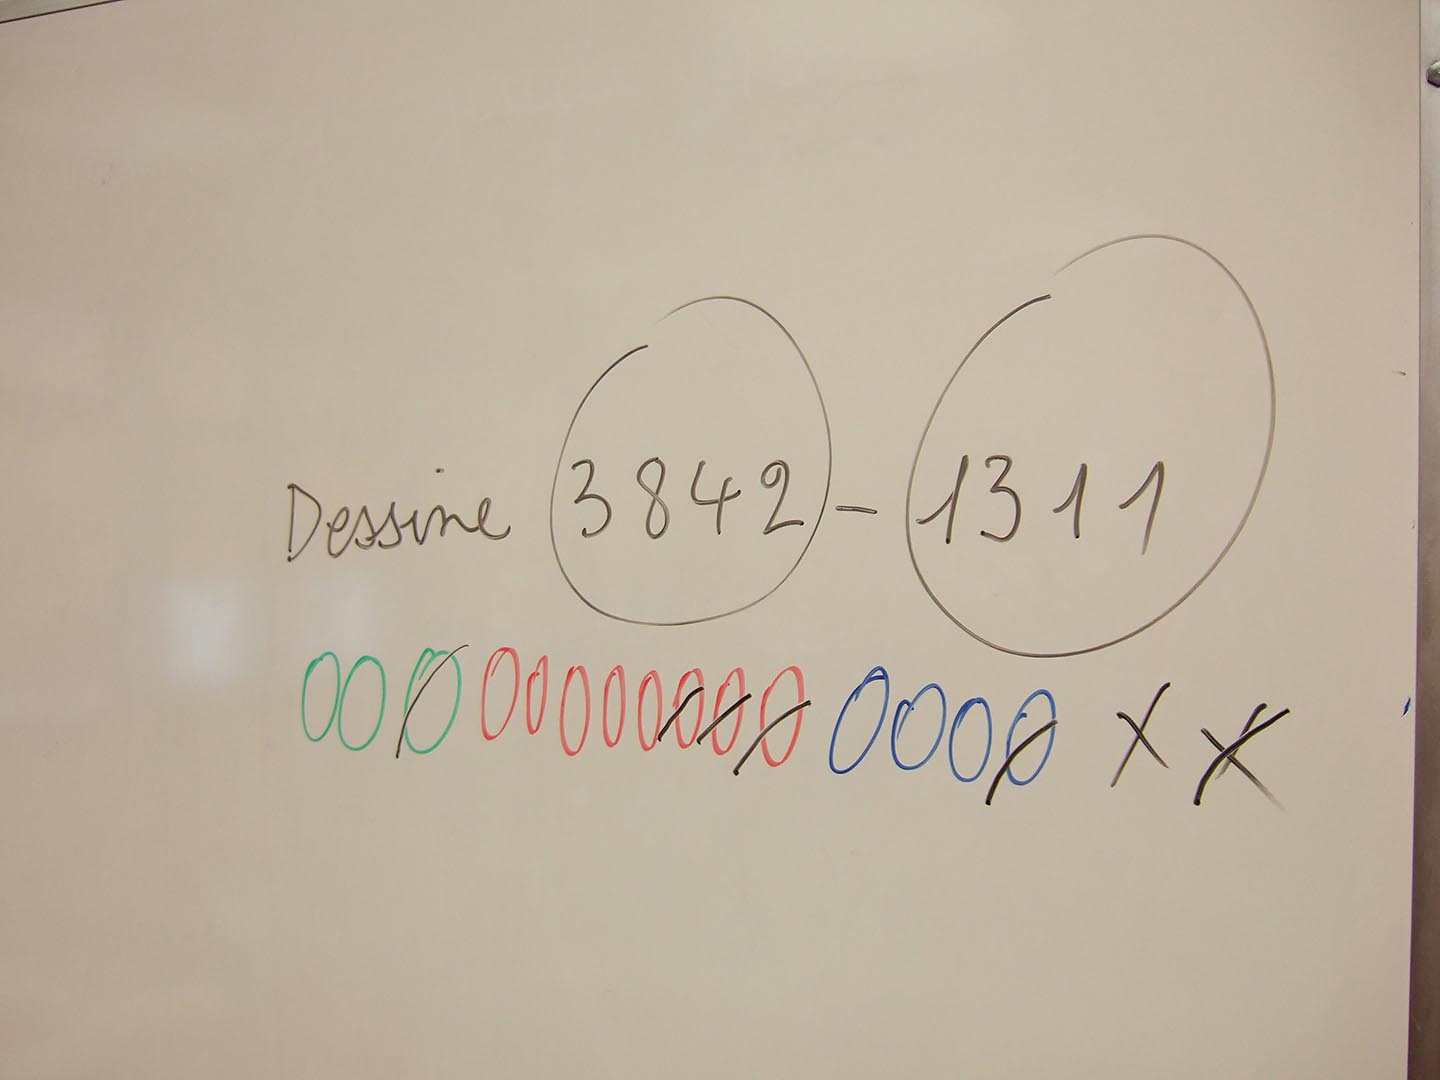 Dessine 3842 - 1311